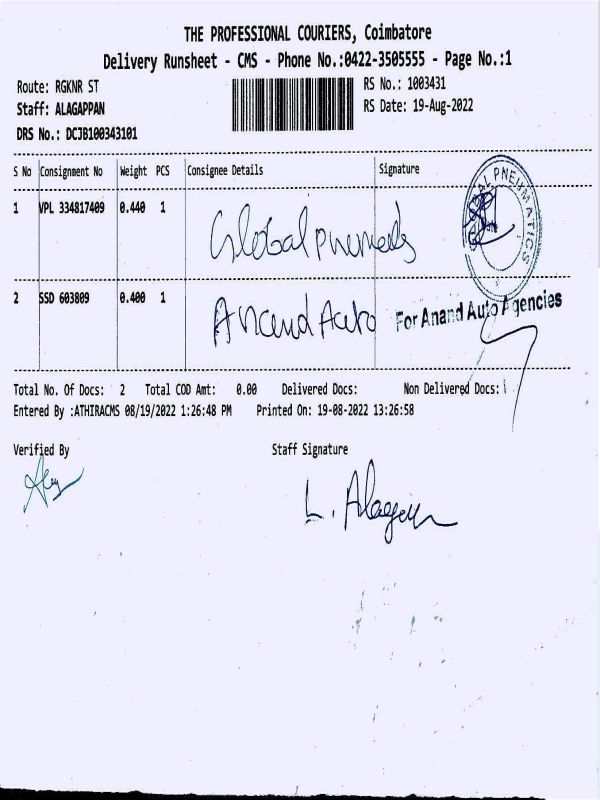 THE PROFESSIONAL COURIERS, Coimbatore
Delivery Runsheet - CMS - Phone No.:0422-3505555 - Page No.:1
Route: RGKNR ST
RS No.: 1003431
Staff: ALAGAPPAN
RS Date: 19-Aug-2022
DRS No.: DCJB100343101
S No Consignment No Weight PCS Consignee Details Signature
1 VPL 334817409 0.440 1 Global pneumatics
GLOBAL PNEUMATICS
2 SSD 603809 0.400 1 Anand Auto For Anand Auto Agencies
Total No. Of Docs: 2 Total COD Amt: 0.00 Delivered Docs: Non Delivered Docs:
Entered By :ATHIRACMS 08/19/2022 1:26:48 PM Printed On: 19-08-2022 13:26:58
Verified By Staff Signature
L. Alagappan